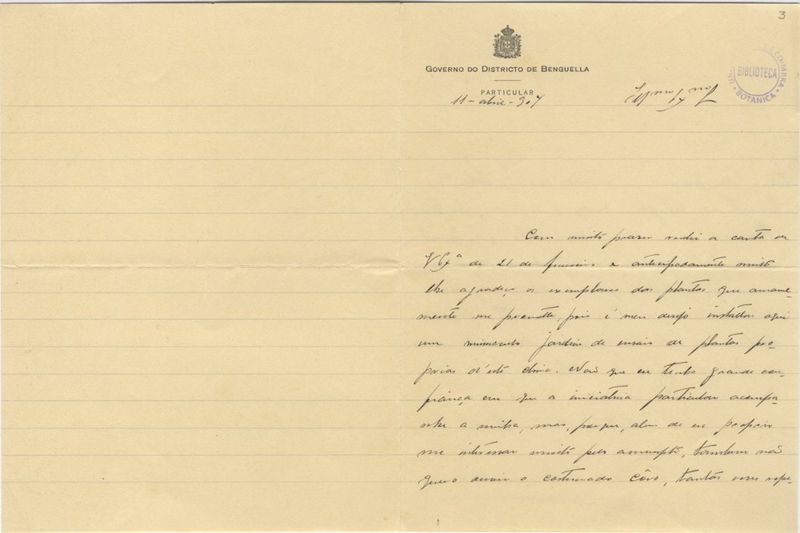 3
GOVERNO DO DISTRICTO DE BENGUELLA
PARTICULAR
11 - abril - 907
BIBLIOTECA
BOTANICA
Com muito prazer recebi a carta de
V Exª de 21 de fevereiro e antecipadamente muito
lhe agradeço os exemplares das plantas que amavel-
mente me promette, pois é meu desejo installar aqui
um minusculo jardim de ensaio de plantas pro-
prias d'este clima. Não que eu tenha grande con-
fiança em que a iniciativa particular acompa-
nhe a minha, mas, porque, alem de eu proprio
me interessar muito pelo assumpto, tambem não
quero ouvir o costumado côro, tantas vezes repe-